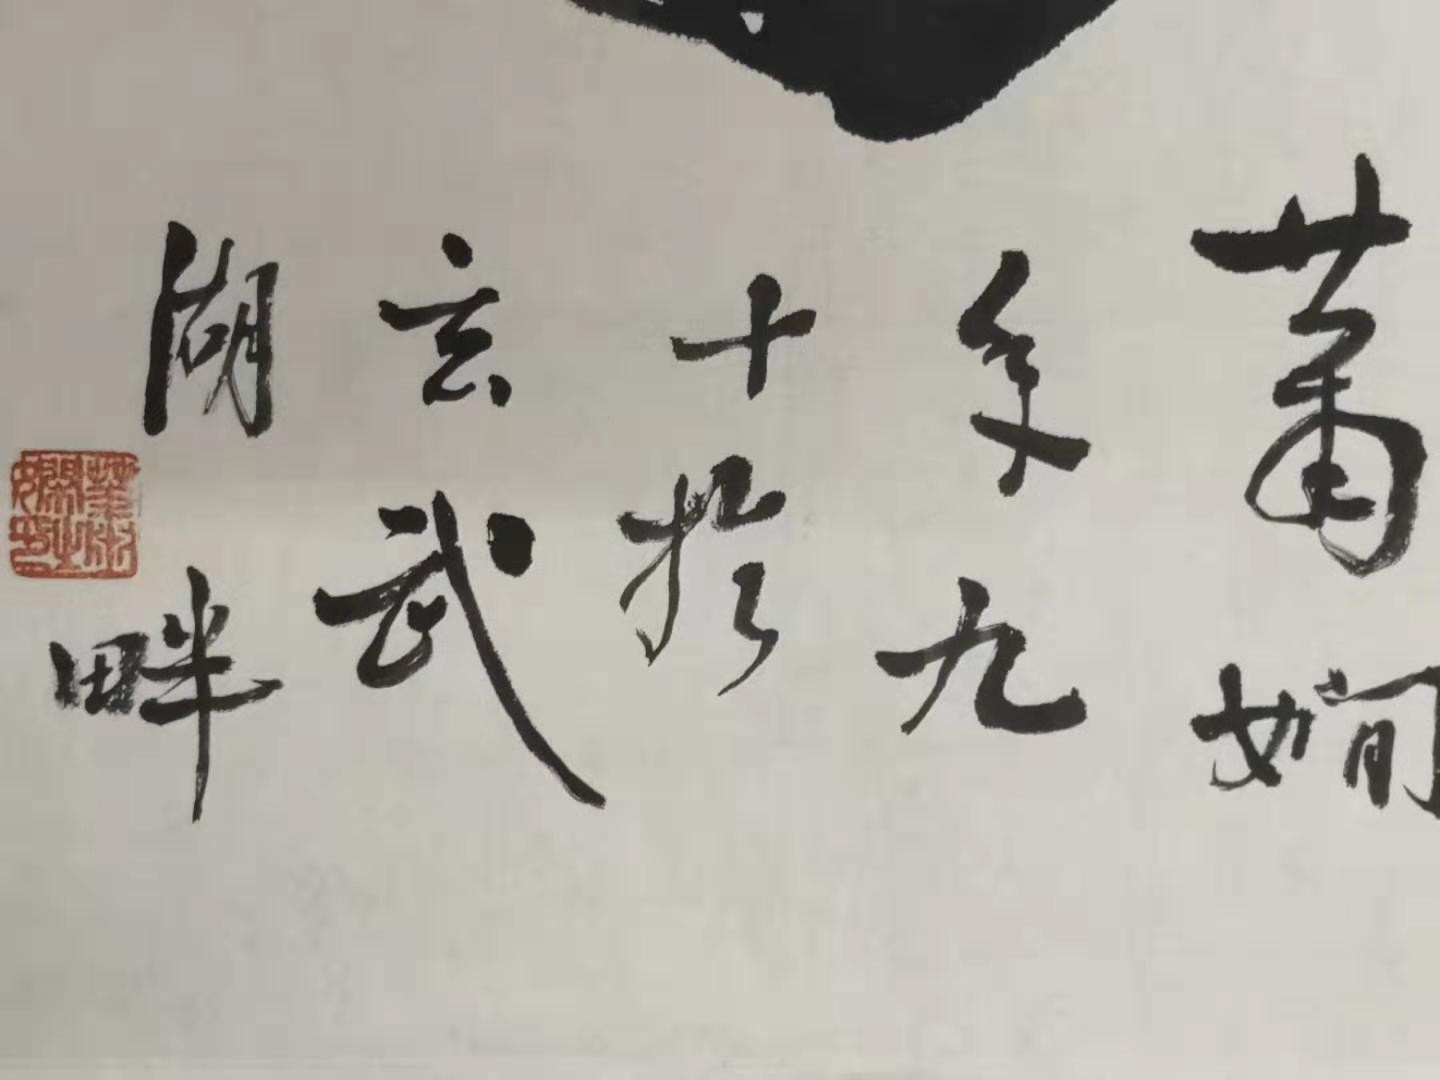 蕭嫺
年九
十於
玄武
湖畔